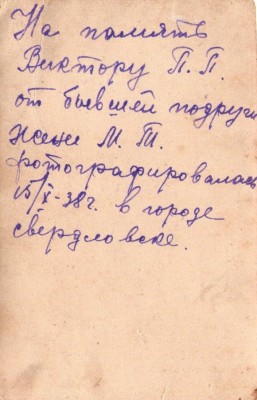 На память
Виктору П. П.
от бывшей подруги
Жени М. Т.
фотографировалась
15/X-38г. в городе
свердловске.